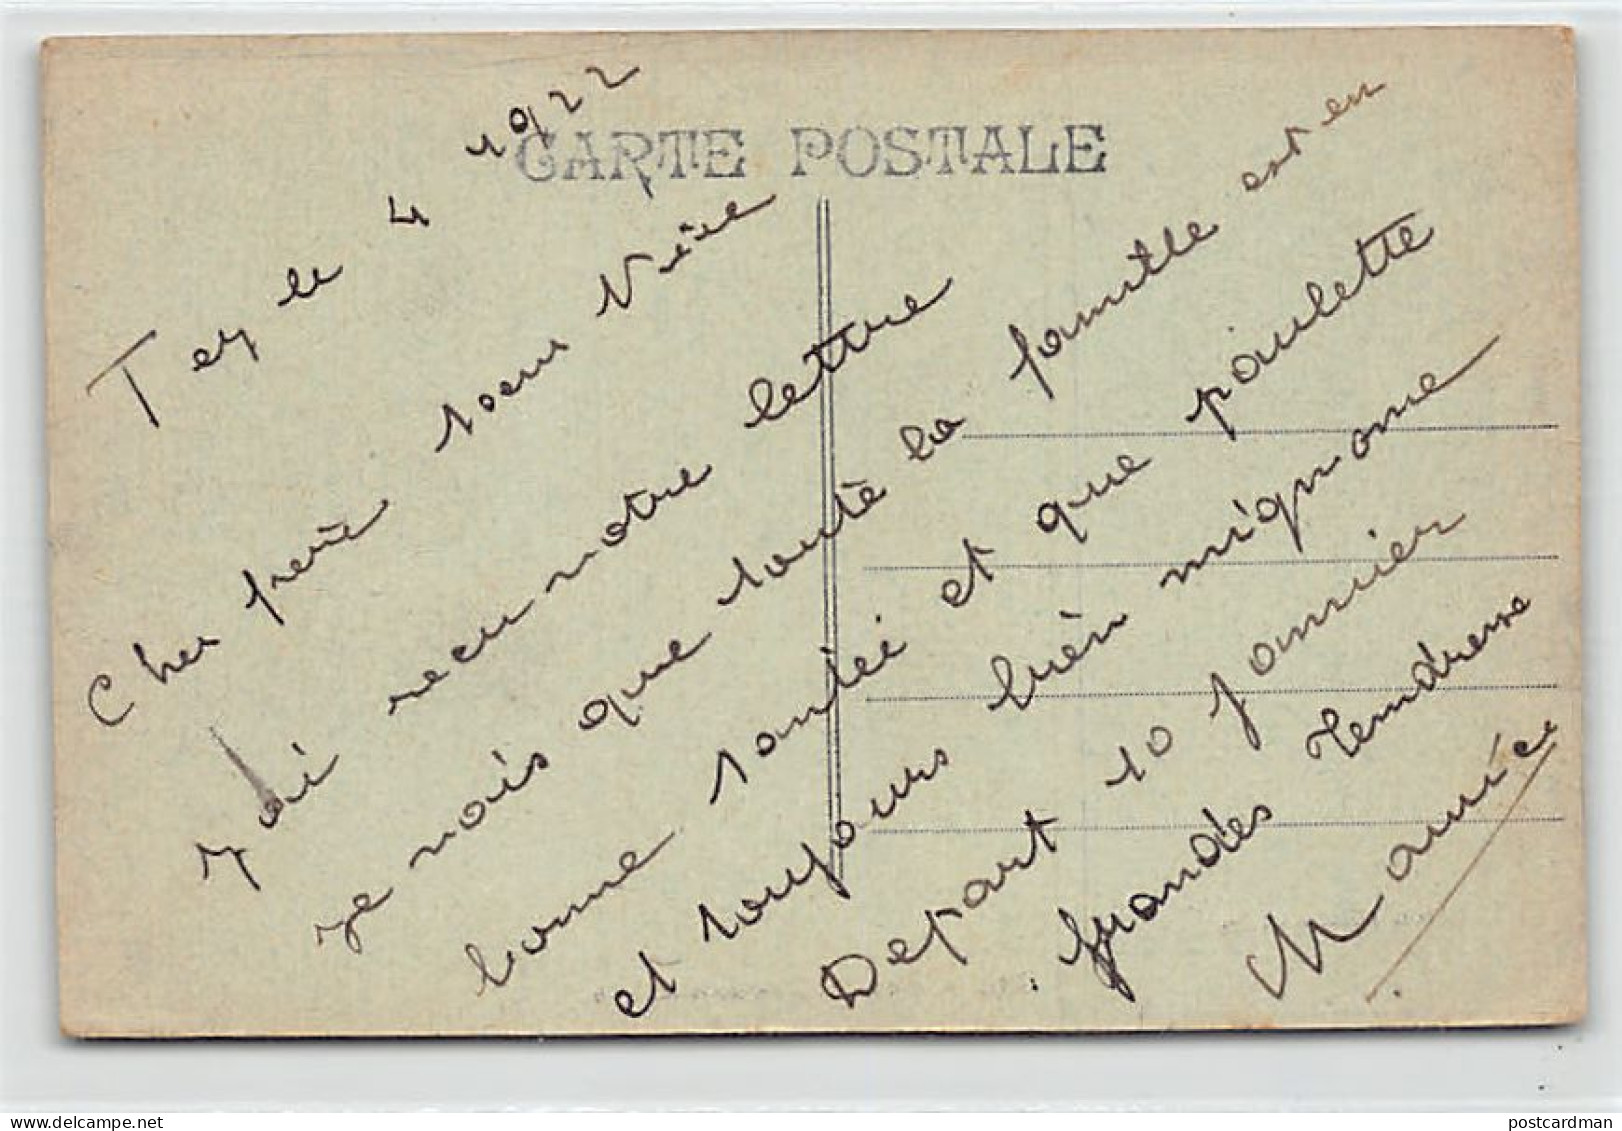 CARTE POSTALE
Tey le 4 1922
Cher frère soeur Nièce
J ai recu votre lettre
je vois que toute la famille est en
bonne santéé et que paulette
et toujours bièn mignone
Depart 10 janvier
grandes Tendresse
Maurice
postcardman